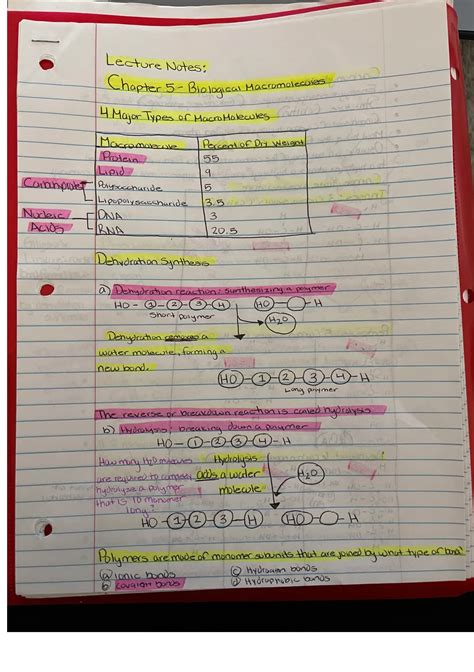 Lecture Notes:
Chapter 5 - Biological Macromolecules
4 Major Types of MacroMolecules
Macromolecule Percent of Dry Weight
Protein 55
Lipid 9
Polysaccharide 5
Lipopolysaccharide 3.5
Nucleic Acids DNA 3
RNA 20.5
Dehydration Synthesis
a) Dehydration reaction: synthesizing a polymer
HO-1-2-3-4 HO- -H
Short polymer
H2O
Dehydration removes a
water molecule, forming a
new bond.
HO-1-2-3-4-H
Long polymer
The reverse or breakdown reaction is called hydrolysis
b) Hydrolysis: breaking down a polymer
HO-1-2-3-4-H
How many H2O
are required to
hydrolyse a polymer
that is 10 monomer
long?
Hydrolysis
adds a water
molecule
H2O
HO-1-2-3-H HO- -H
Polymers are made of monomer subunits that are joined by what type of bond
a) ionic bonds c) Hydrogen bonds
b) covalent bonds d) Hydrophobic bonds